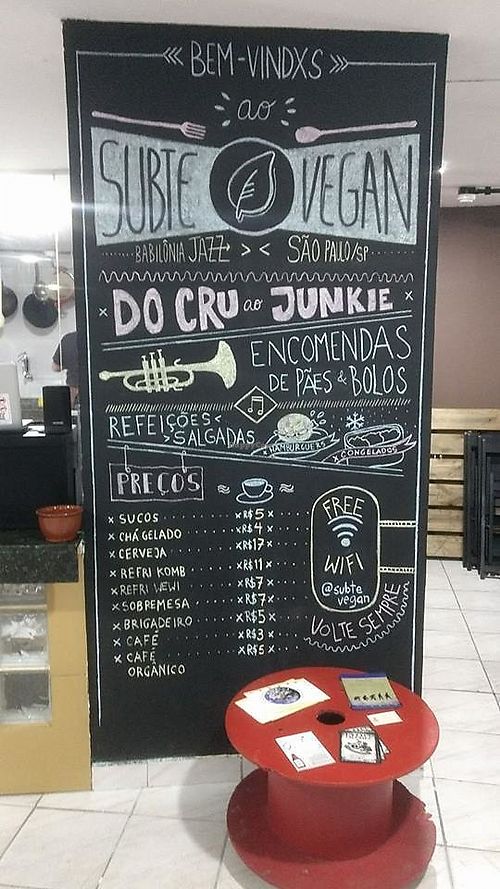 BEM-VINDXS
ao
SUBTE VEGAN
BABILÔNIA JAZZ > < SÃO PAULO/SP
x DO CRU ao JUNKIE x
ENCOMENDAS
DE PÃES & BOLOS
REFEIÇÕES <
> SALGADAS
HAMBURGUERS
x CONGELADOS
PREÇOS
x SUCOS xR$5x
x CHÁ GELADO xR$4x
x CERVEJA xR$17x
x REFRI KOMB xR$11x
x REFRI WEWI xR$7x
x SOBREMESA xR$7x
x BRIGADEIRO xR$5x
x CAFÉ xR$3x
x CAFÉ xR$5x
ORGÂNICO
FREE
WIFI
@subte
vegan
VOLTE SEMPRE